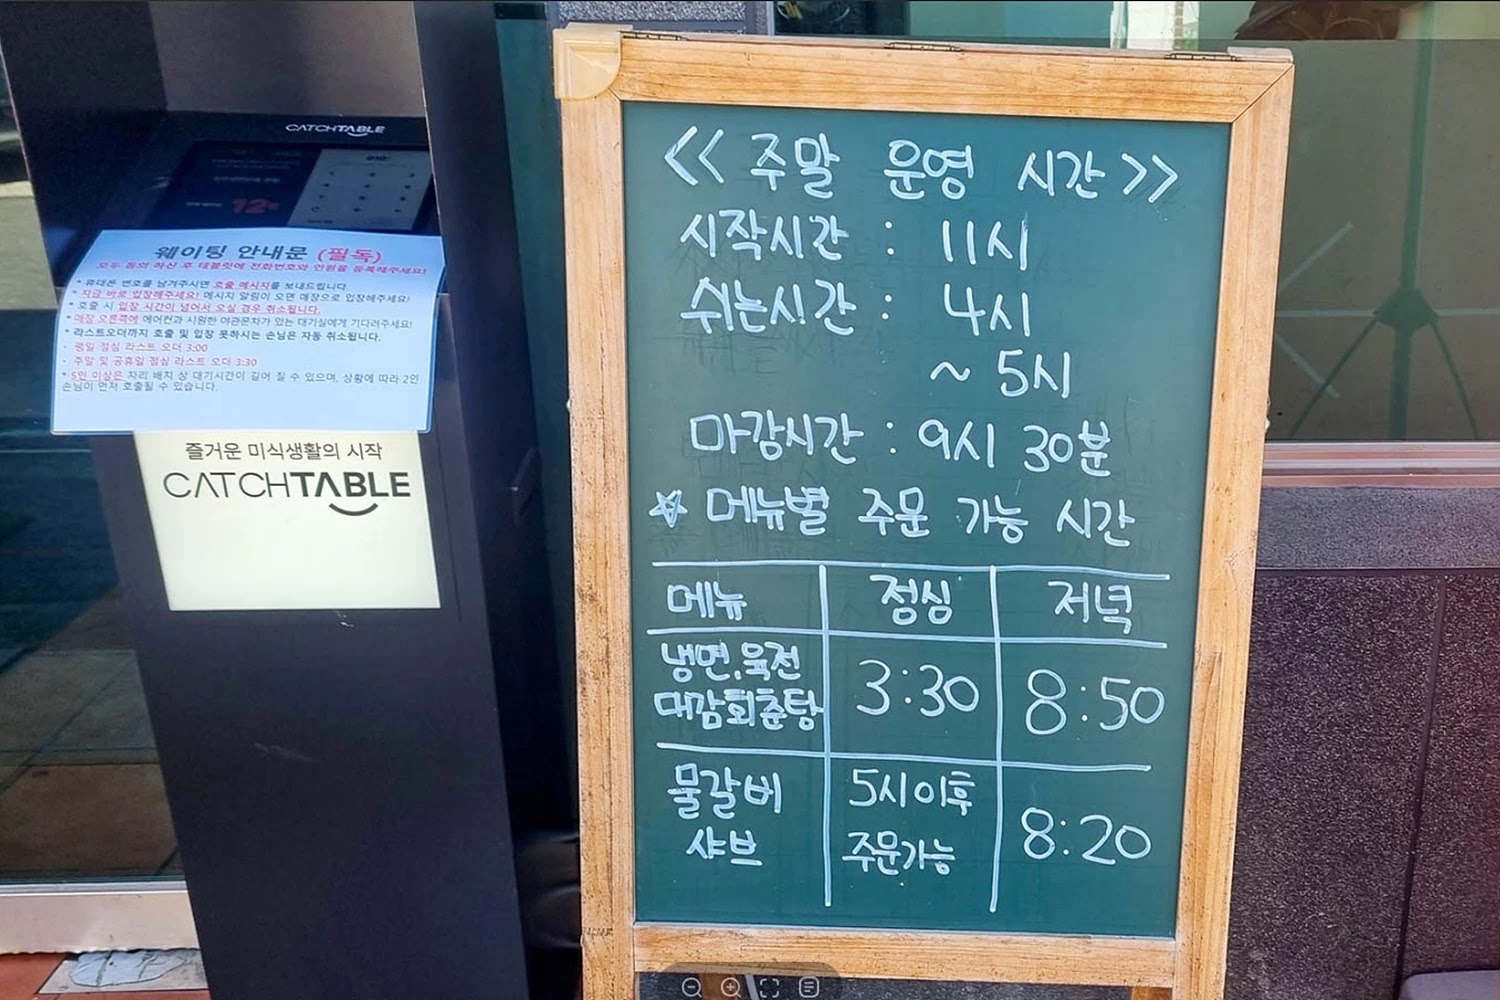 CATCHTABLE
웨이팅 안내문 (필독)
모두 동의 하신 후 테블릿에 전화번호와 인원을 등록해주세요!
* 휴대폰 번호를 남겨주시면 호출 메시지를 보내드립니다.
* 지금 바로 입장해주세요! 메시지 알림이 오면 매장으로 입장해주세요!
* 호출 시 입장 시간이 넘어서 오실 경우 취소됩니다.
* 매장 오른쪽에 에어컨과 시원한 야관문차가 있는 대기실에게 기다려주세요!
* 라스트오더까지 호출 및 입장 못하시는 손님은 자동 취소됩니다.
- 평일 점심 라스트 오더 3:00
- 주말 및 공휴일 점심 라스트 오더 3:30
* 5인 이상은 자리 배치 상 대기시간이 길어 질 수 있으며, 상황에 따라 2인
손님이 먼저 호출될 수 있습니다.
즐거운 미식생활의 시작
CATCHTABLE
<< 주말 운영 시간 >>
시작시간 : 11시
쉬는시간 : 4시
~ 5시
마감시간 : 9시 30분
☆ 메뉴별 주문 가능 시간
메뉴 점심 저녁
냉면.육전
대감회춘탕 3:30 8:50
물갈비 샤브 5시이후 주문가능 8:20